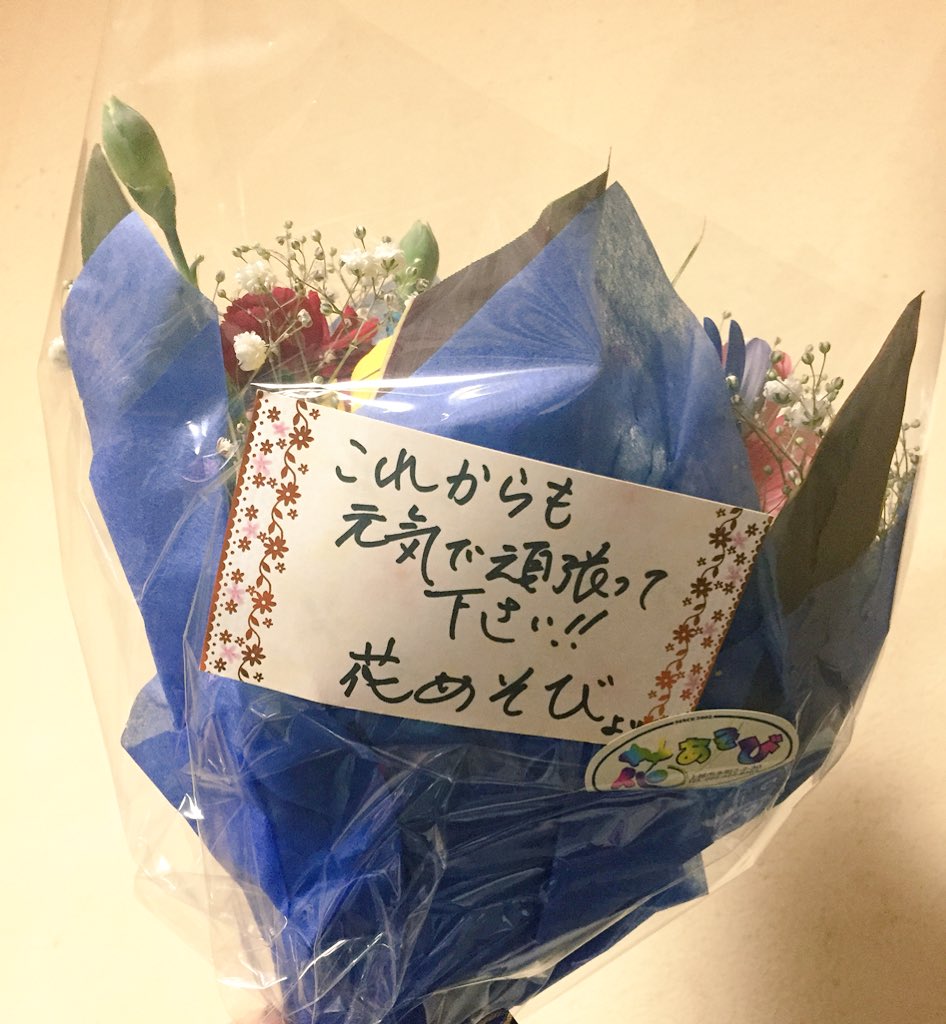 これからも
元気で頑張って
下さい!!
花あそびより
SINCE 2002
花あそび